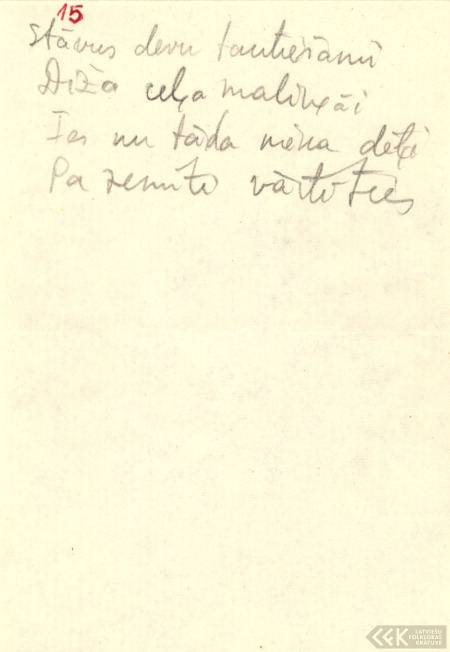 15
Stāvus devu tautiešami
Diža ceļa maliņāi
Ies nu tāda nieka dēļi
Pa zemīti vārtīties
LATVIEŠU
FOLKLORAS
KRĀTUVE